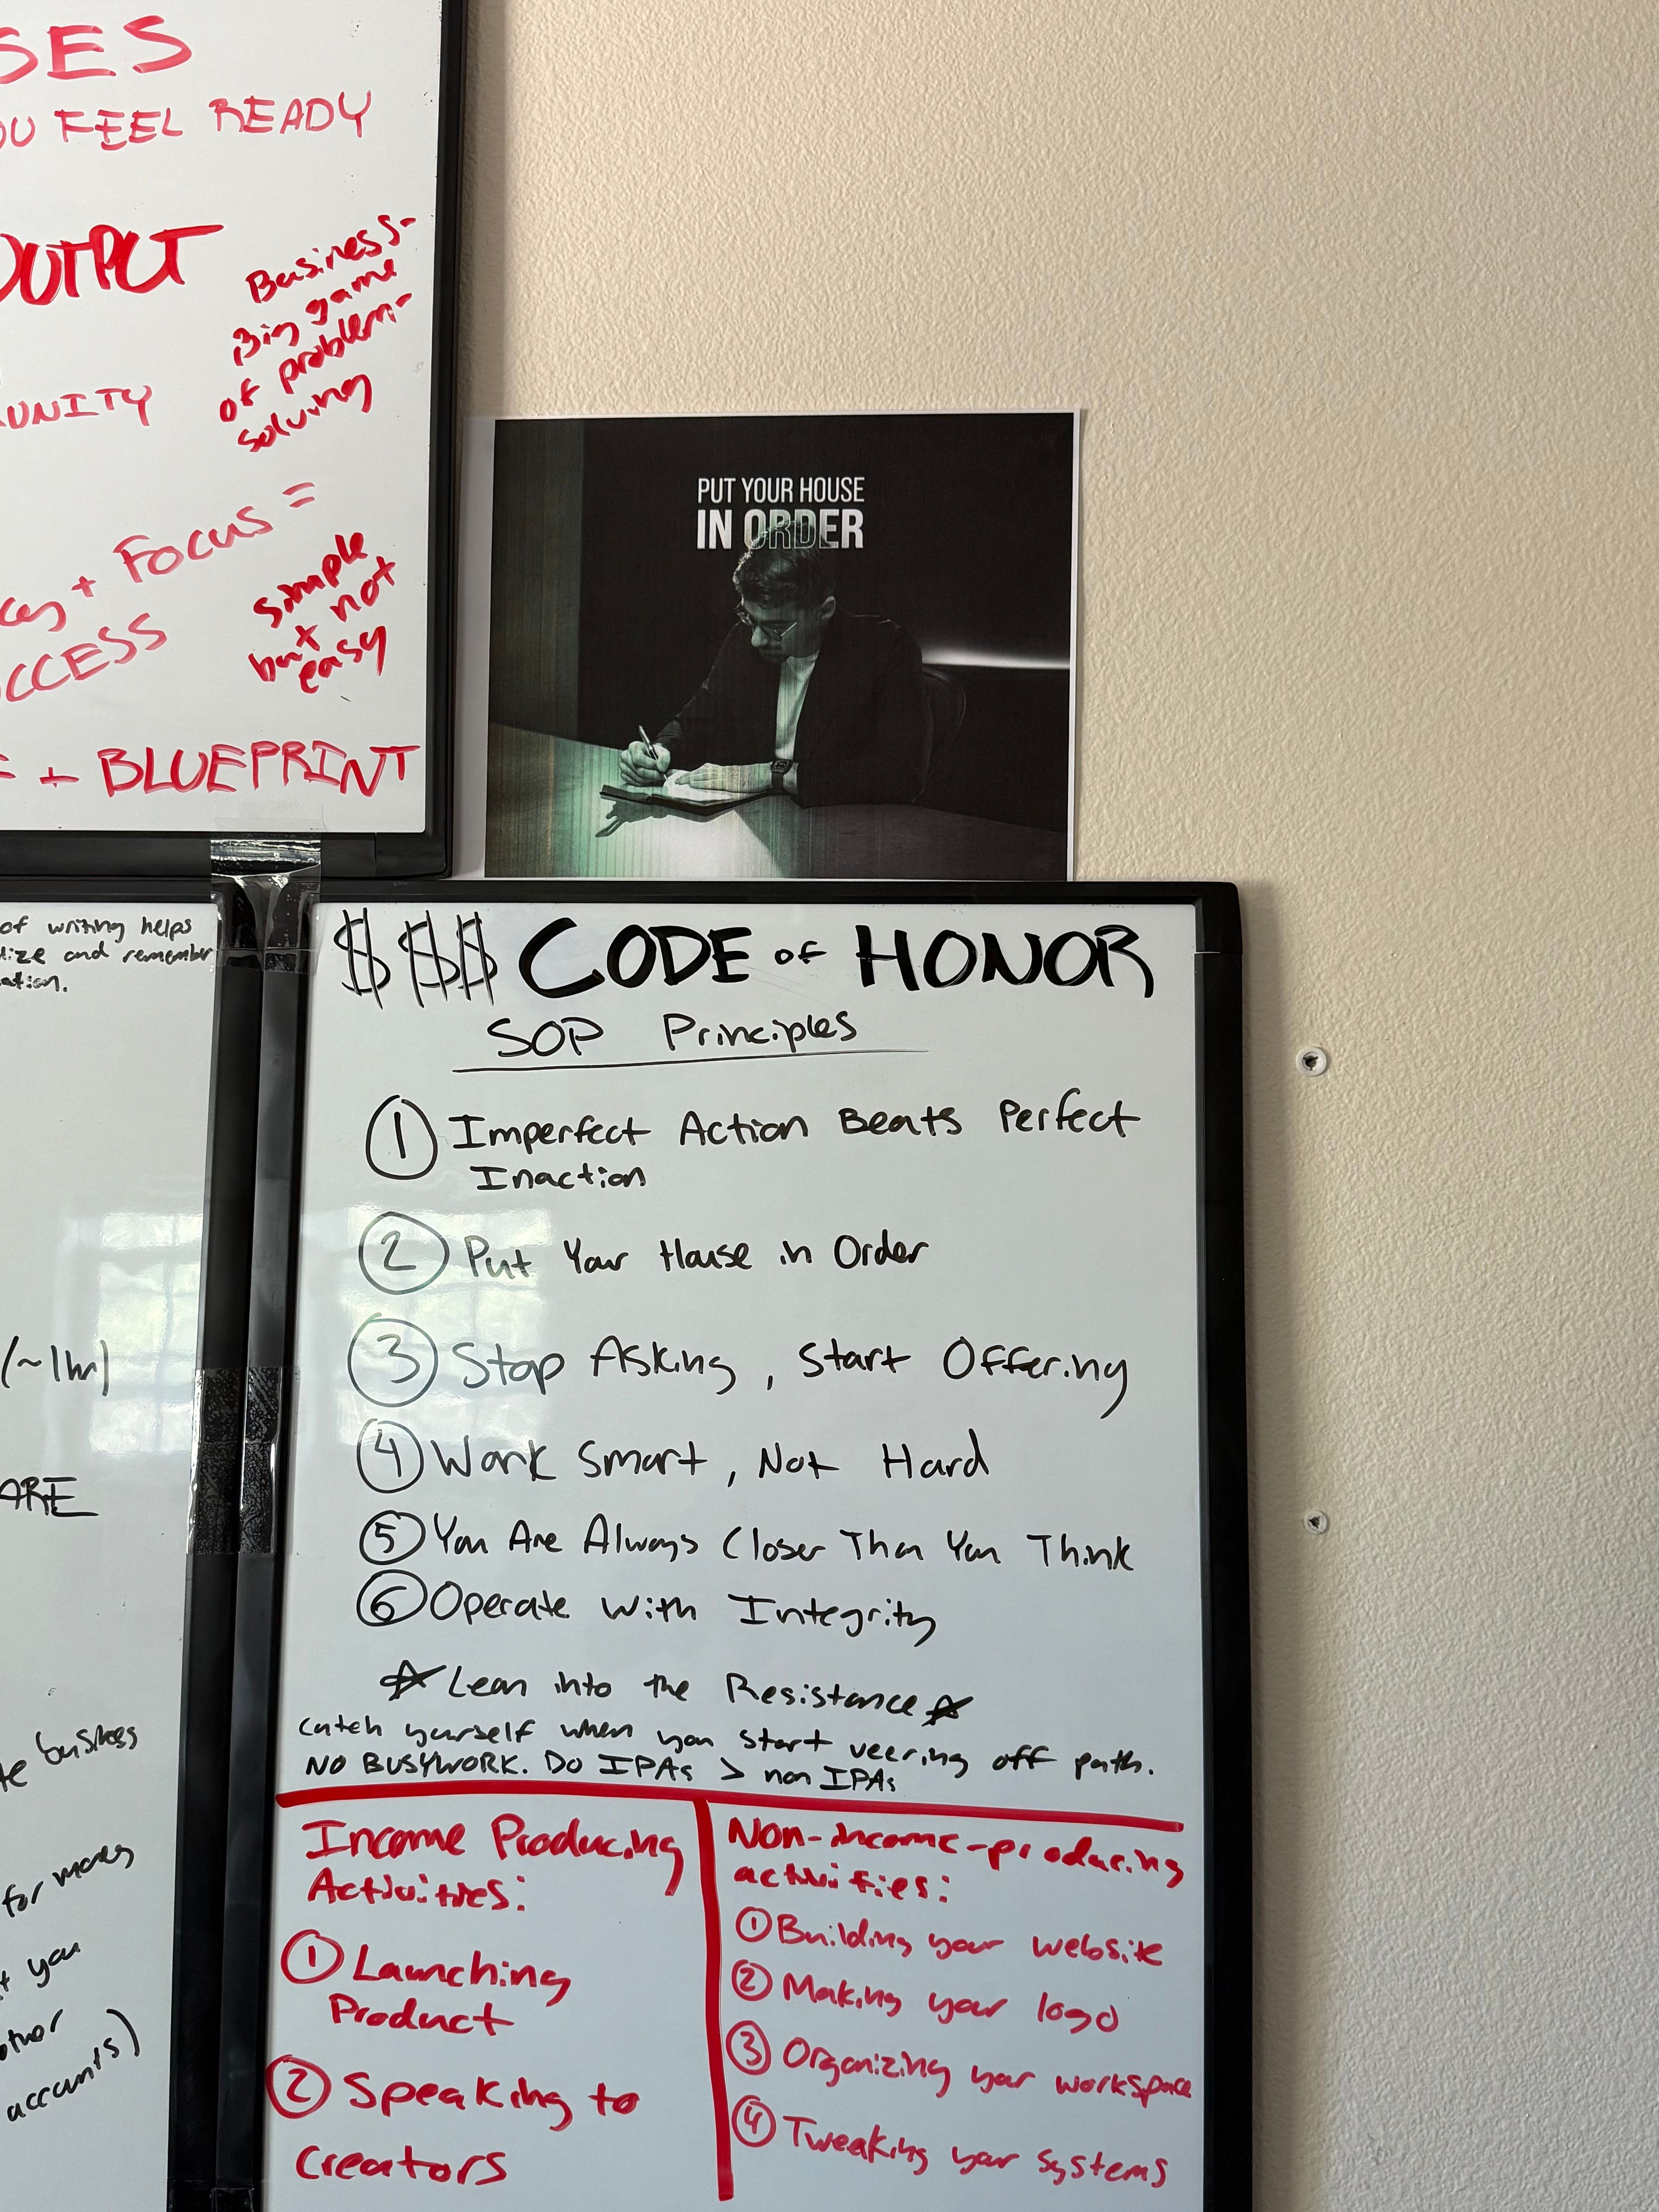 SES
OU FEEL READY
OUTPUT
Business-
Big game
of problem-
solving
UNITY
+ Focus =
CCESS
simple
but not
easy
+ BLUEPRINT
PUT YOUR HOUSE
IN ORDER
of writing helps
lize and remember
ation.
(~1hr)
ARE
te business
for money
t you
other
accounts)
$$$ CODE OF HONOR
SOP Principles
1 Imperfect Action Beats Perfect
Inaction
2 Put Your House in Order
3 Stop Asking, Start Offering
4 Work Smart, Not Hard
5 You Are Always Closer Than You Think
6 Operate With Integrity
☆ Lean into the Resistance ☆
catch yourself when you start veering off path.
NO BUSYWORK. DO IPAs > non IPAs
Income Producing
Activities:
1 Launching
Product
2 Speaking to
Creators
Non-income-producing
activities:
1 Building your website
2 Making your logo
3 Organizing your workspace
4 Tweaking your systems